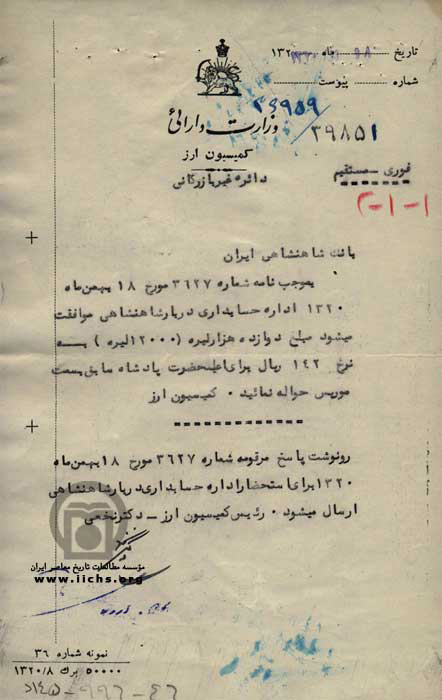 تاریخ ماه ۱۳۲۰
شماره پیوست
۳۶۹۵۹
وزارت دارائی
۳۹۸۵۱
کمیسیون ارز
دائره غیربازرگانی
فوری - مستقیم
۲-۱-۱
بانک شاهنشاهی ایران
بموجب نامه شماره ۳۶۲۷ مورخ ۱۸ بهمن ماه
۱۳۲۰ اداره حسابداری دربار شاهنشاهی موافقت
میشود مبلغ دوازده هزار لیره (۱۲۰۰۰ لیره) به
نرخ ۱۴۲ ریال برای اعلیحضرت پادشاه سابق بسمت
موریس حواله نمائید. کمیسیون ارز
رونوشت پاسخ مرقومه شماره ۳۶۲۷ مورخ ۱۸ بهمن ماه
۱۳۲۰ برای استحضار اداره حسابداری دربار شاهنشاهی
ارسال میشود. رئیس کمیسیون ارز - دکتر نخعی
مؤسسه مطالعات تاریخ معاصر ایران
www.iichs.org
نمونه شماره ۳۶
۵۰۰۰۰ برگ ۱۳۲۰/۸